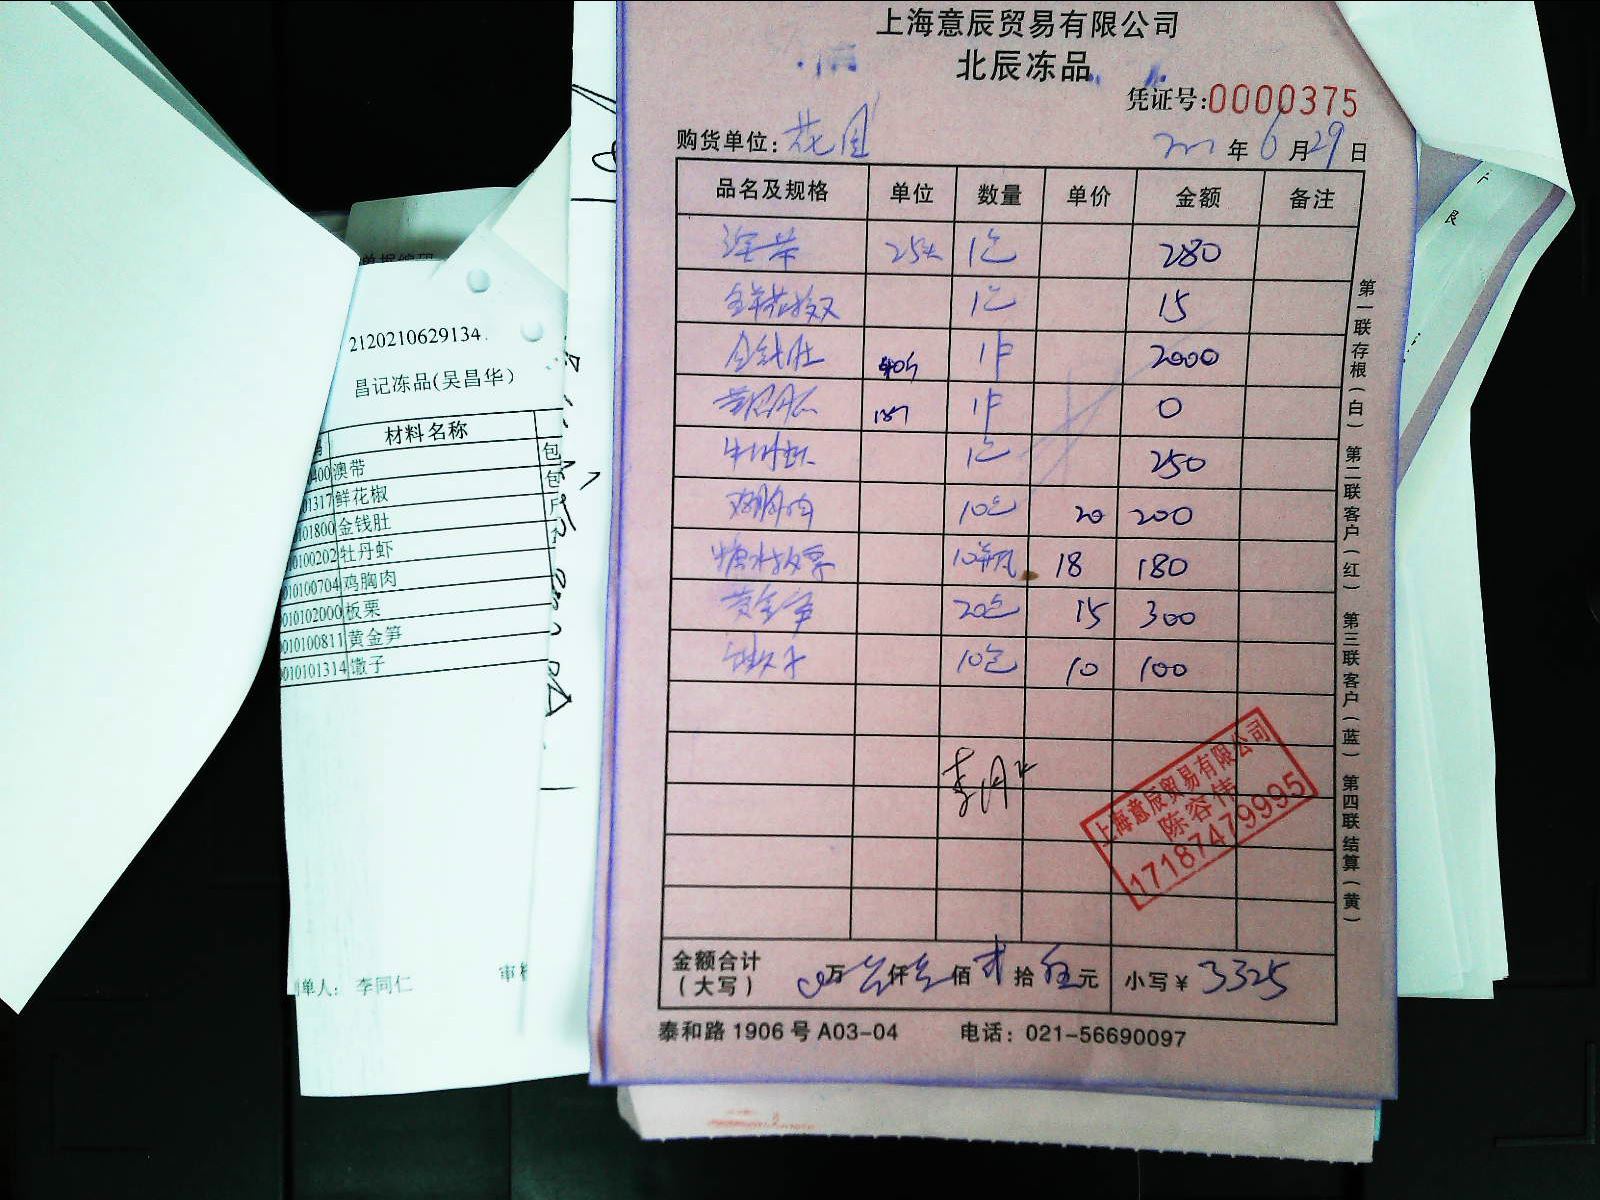 2120210629134
昌记冻品(吴昌华)
材料名称
400 澳带 包
01317 鲜花椒 包
0101800 金钱肚
0100202 牡丹虾
010100704 鸡胸肉
0010102000 板栗
0010100811 黄金笋
0010101314 馓子
制单人: 李同仁 审核
上海意辰贸易有限公司
北辰冻品
凭证号:0000375
购货单位: 花园 年 6 月 29 日
品名及规格 单位 数量 单价 金额 备注
带 1包 280
鲜花椒 1包 15
金钱肚 1件 2000
1件 0
1包 250
鸡胸肉 10包 20 200
糖水板栗 10瓶 18 180
黄金笋 20包 15 300
馓子 10包 10 100
上海意辰贸易有限公司
陈容伟
17187479995
金额合计
(大写) 万 仟 佰 贰 拾 伍 元 小写¥ 3325
泰和路 1906 号 A03-04 电话: 021-56690097
第一联存根(白) 第二联客户(红) 第三联客户(蓝) 第四联结算(黄)